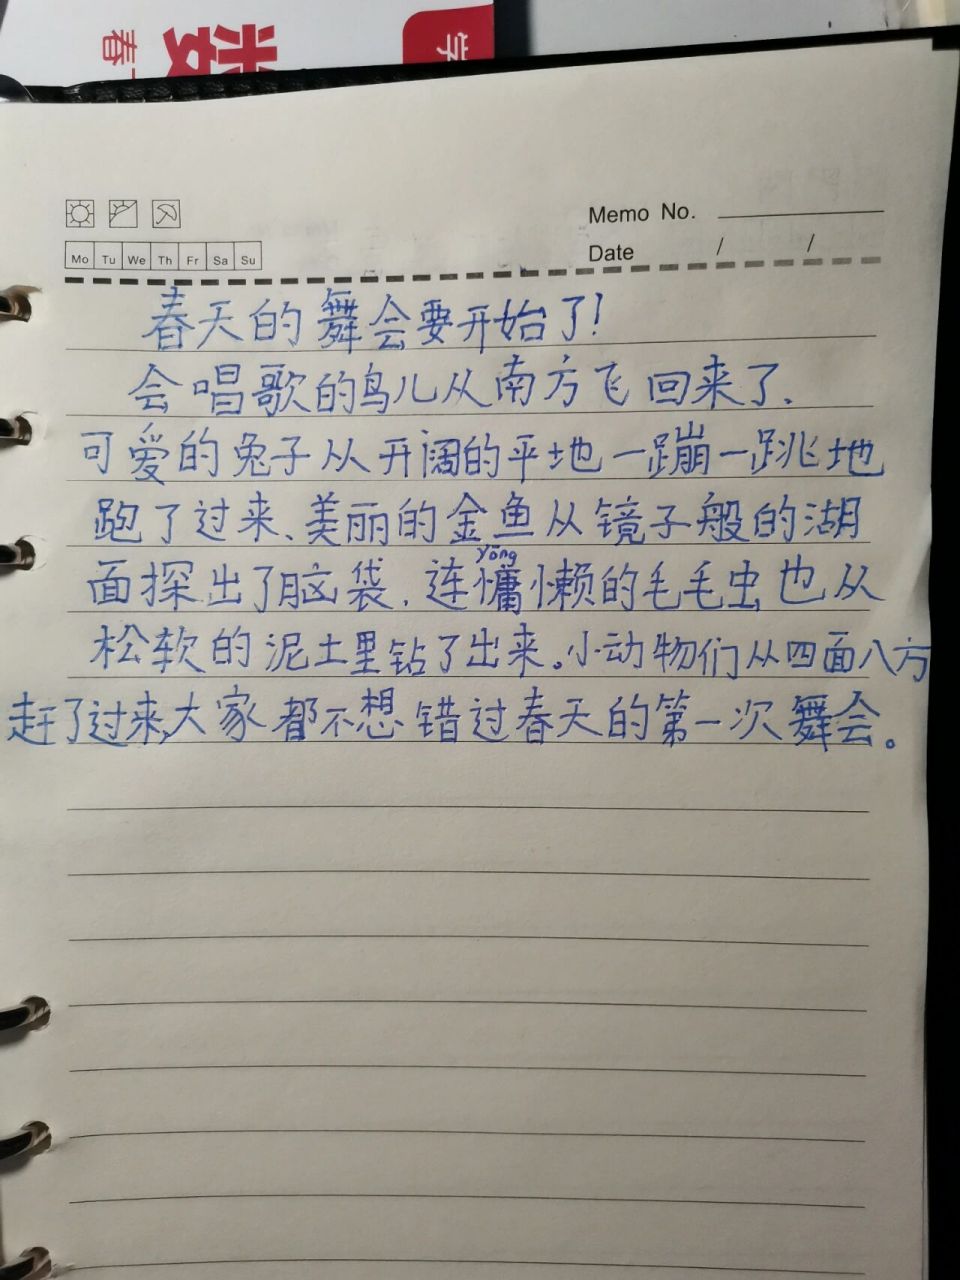 学
春
Memo No.
Mo Tu We Th Fr Sa Su
Date / /
春天的舞会要开始了!
会唱歌的鸟儿从南方飞回来了.
可爱的兔子从开阔的平地一蹦一跳地
跑了过来、美丽的金鱼从镜子般的湖
yōng
面探出了脑袋.连慵懒的毛毛虫也从
松软的泥土里钻了出来。小动物们从四面八方
赶了过来,大家都不想错过春天的第一次舞会。